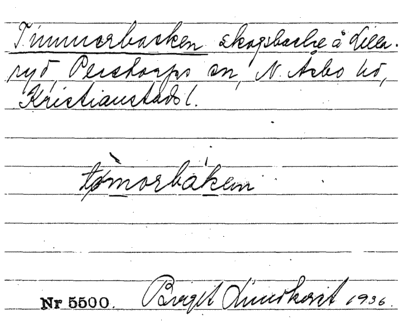 Timmerbacken skogsbacke å Lilla-
ryd, Perstorps sn, N. Åsbo hd,
Kristianstads l.
Nr 5500. Birgit Lindkvist 1936.